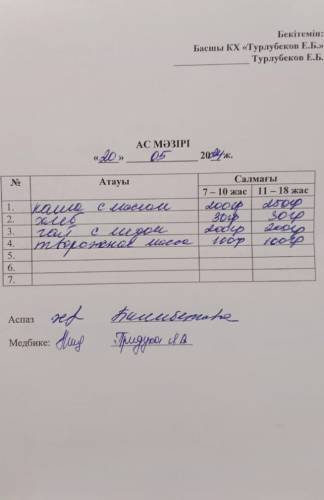 Бекітемін:
Басшы КХ «Турлубеков Е.Б.»
Турлубеков Е.Б.
АС МӘЗІРІ
«20» 05 2024 ж.
№ Атауы Салмағы
7 – 10 жас 11 – 18 жас
1. каша с маслом 200гр 250гр
2. хлеб 30гр 30гр
3. чай с медом 200гр 200гр
4. творожная масса 100гр 100гр
5.
6.
7.
Аспаз
Медбике: